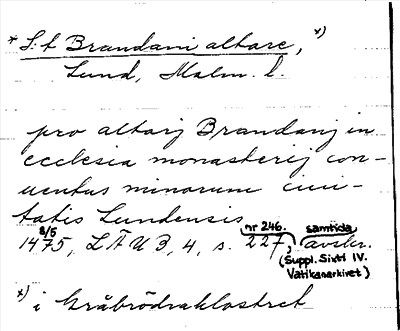 * S:t Brandani altare, x)
Lund, Malm. l.
pro altarj Brandanj in
ecclesia monasterij con-
uentus minorum ciui-
tatis Lundensis
1475 8/5, LÄUB, 4, s. 227, nr 246. samtida avskr.
(Suppl. Sixti IV.
Vatikanarkivet)
x) i Gråbrödraklostret